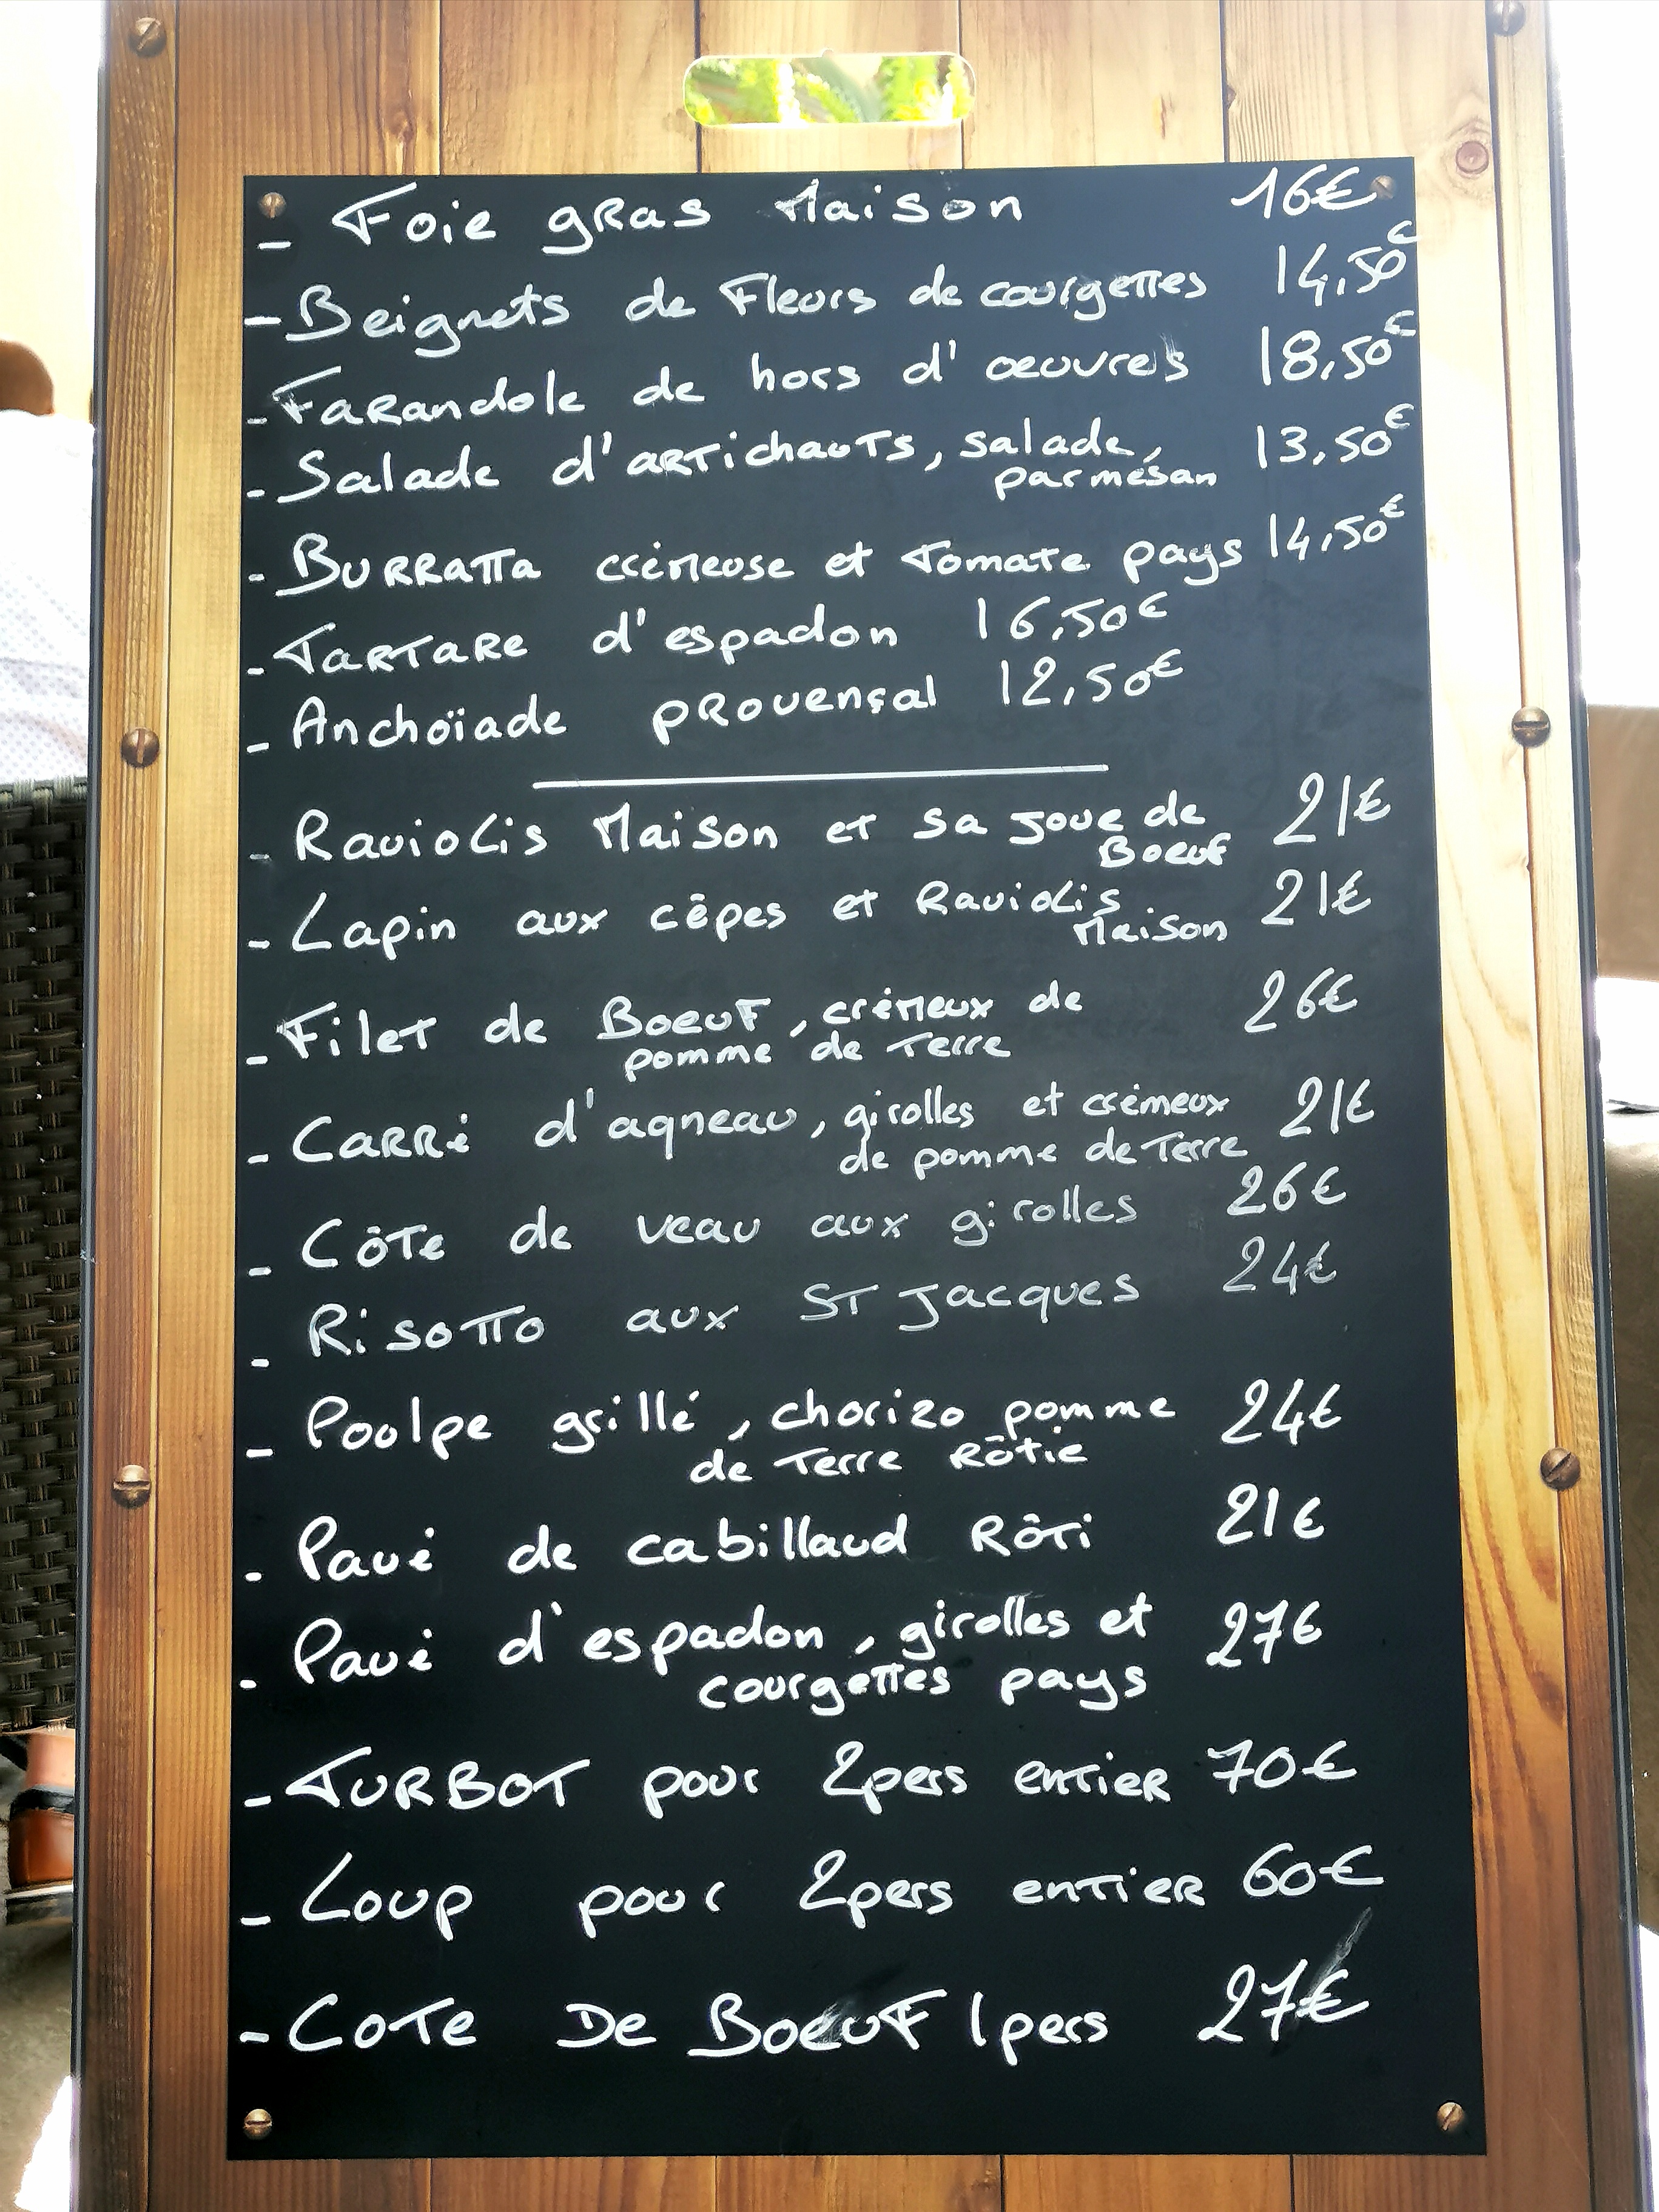 - Foie gRas Maison 16€
- Beignets de Fleurs de courgettes 14,50€
- FaRandole de hors d'œuvres 18,50€
- Salade d'aRTichauTs, salade, 13,50€
parmesan
- BURRaTTa crémeuse et Tomate pays 14,50€
- TaRTaRe d'espadon 16,50€
- Anchoïade pRovençal 12,50€
- Raviolis Maison et sa joue de 21€
Boeuf
- Lapin aux cêpes et Raviolis 21€
Maison
- Filet de BoeuF, crémeux de 26€
pomme de Terre
- CaRRé d'agneau, girolles et crémeux 21€
de pomme de Terre
- CôTe de veau aux girolles 26€
- RisoTTo aux ST Jacques 24€
- Poulpe grillé, chorizo pomme 24€
de Terre Rôtie
- Pavé de cabillaud RôTi 21€
- Pavé d'espadon, girolles et 27€
courgeTTes pays
- TURBOT pour 2pers enTieR 70€
- Loup pour 2pers enTieR 60€
- CoTe De BoeuF 1pers 27€